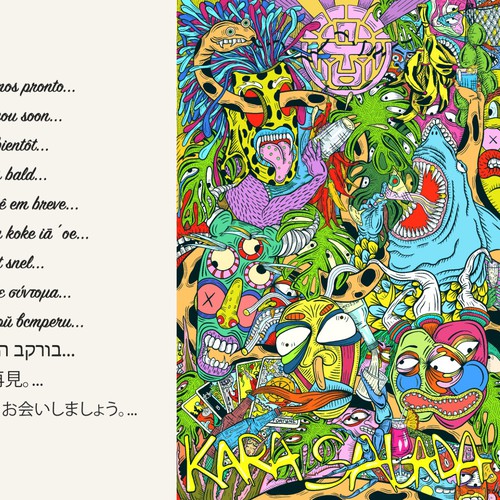 nos pronto...
you soon...
bientôt...
bald...
ê em breve...
koke iā ´oe...
t snel...
ε σύντομα...
ой встречи...
בורקב ה...
再見。...
お会いしましょう。...
KARA